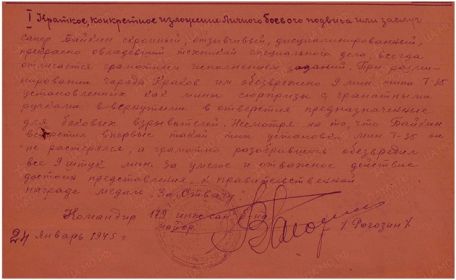 I Краткое, конкретное изложение личного боевого подвига или заслуг
сапер Байбин скромный, отзывчивый, дисциплинированный,
прекрасно овладевший техникой специального дела всегда
отличается грамотным исполнением заданий. При разми-
нировании города Краков им обезврежено 9 мин. типа Т-35
установленных как мины сюрпризы с гранатными
ручками ввернутыми в отверстия предназначенные
для боковых взрывателей. Несмотря на то, что Байбин
встретил впервые такой тип установки мин Т-35 он
не растерялся, а грамотно разобравшись обезвредил
все 9 штук мин. За умелое и отважное действие
достоин представления к правительственной
награде медаль "За Отвагу"
Командир 179 инж. сап. б-на
майор / Рогозин /
24 январь 1945 г